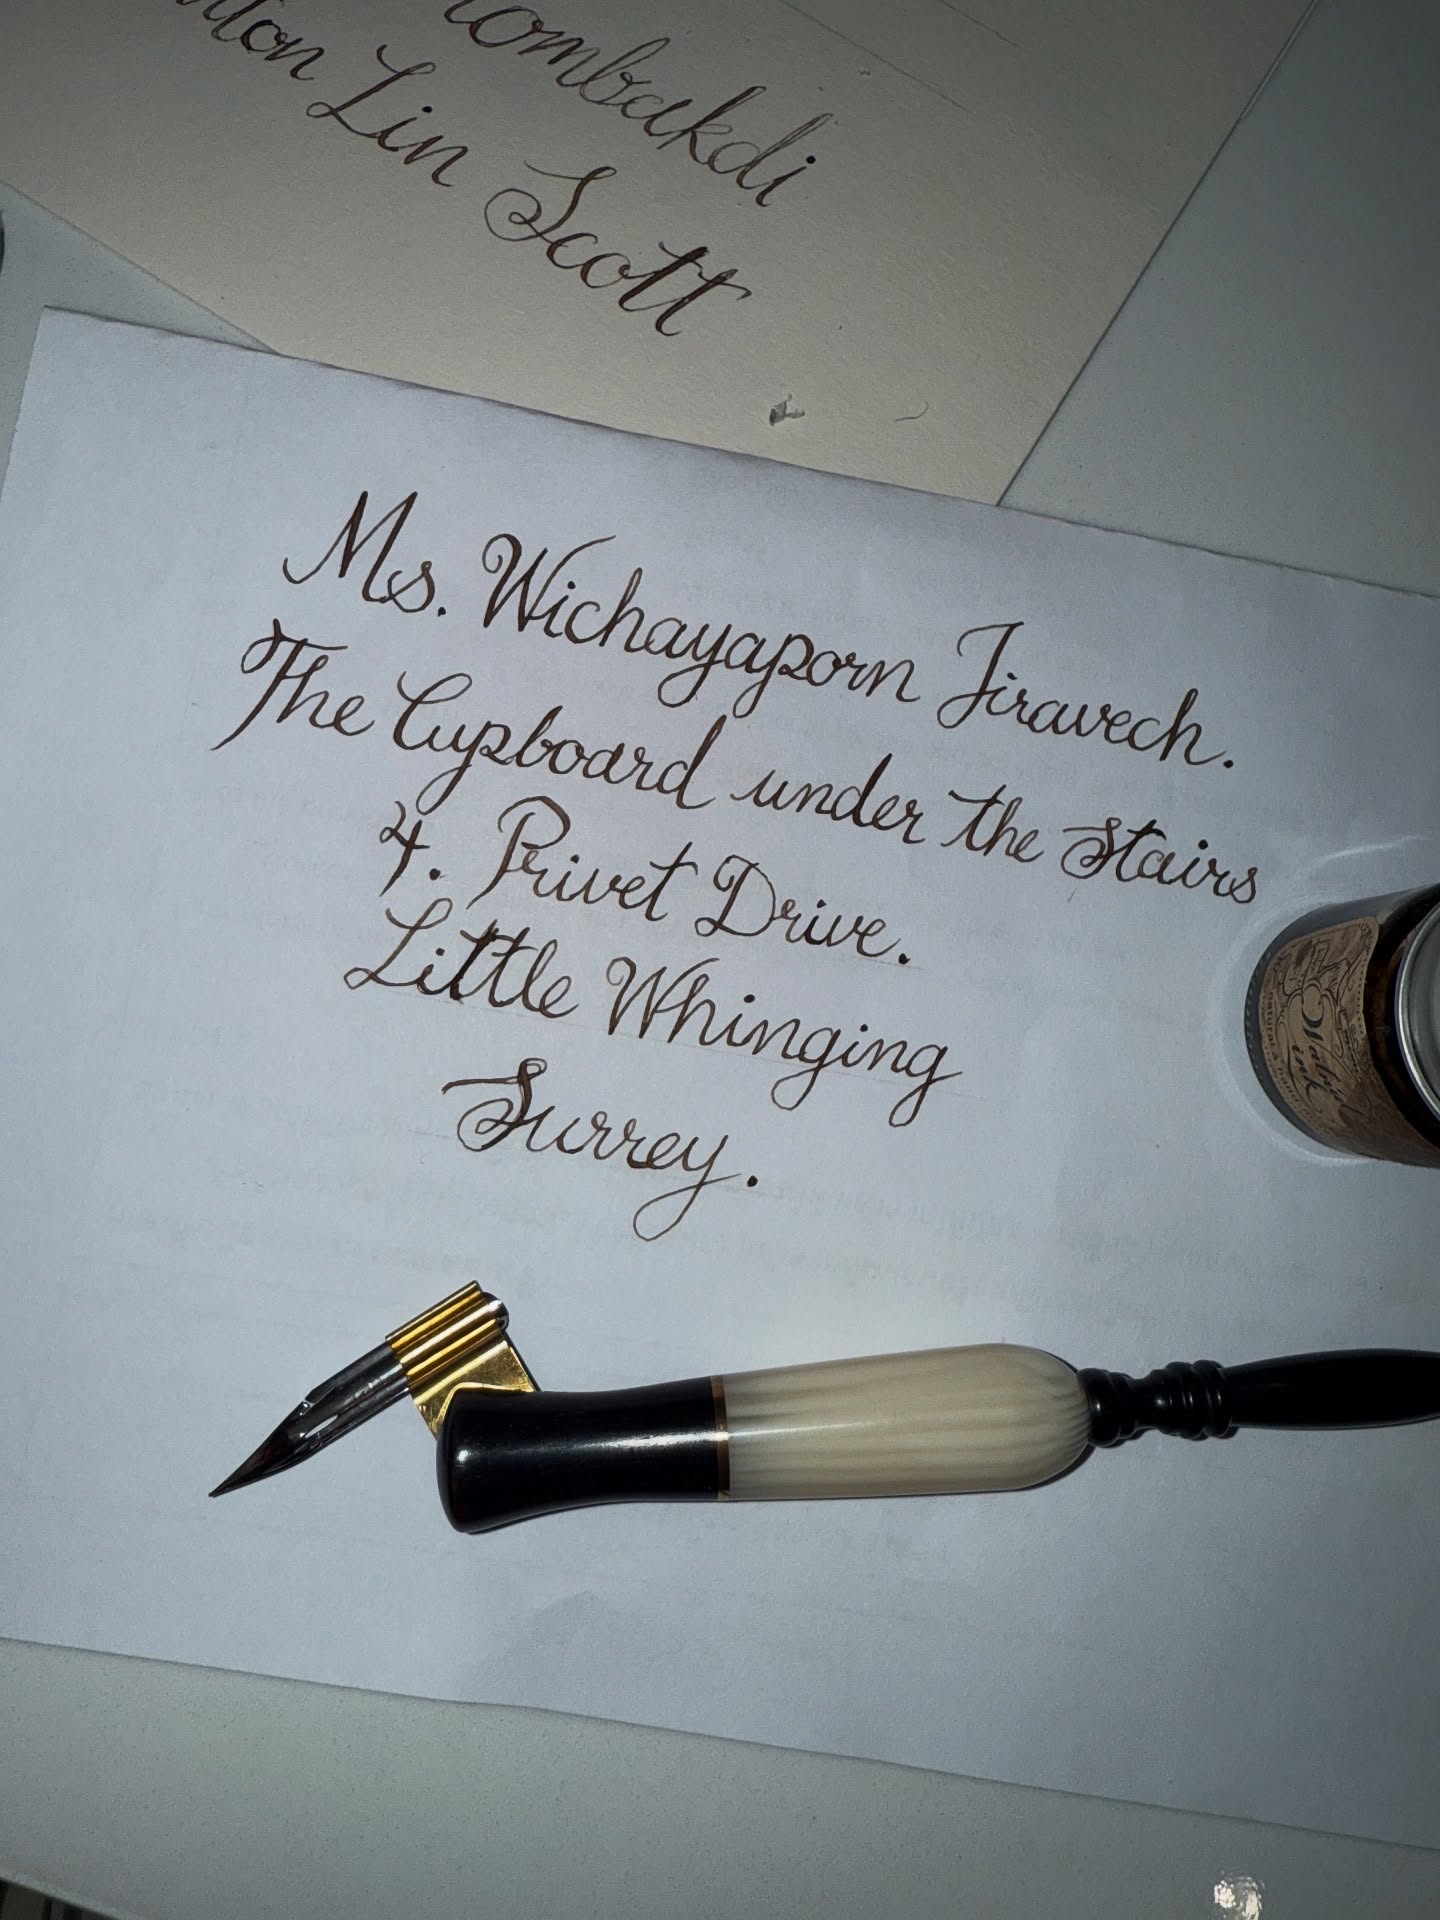 Lin Scott
Ms. Wichayaporn Jiravech.
The Cupboard under the Stairs
4. Privet Drive.
Little Whinging
Surrey.
ink